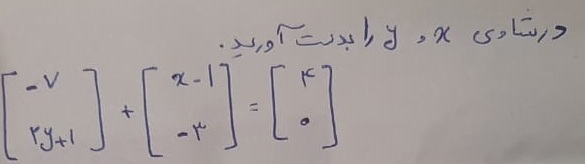 در تساوی x و y را بدست آورید.
[-۷ ; ۲y+۱] + [x-۱ ; -۳] = [۴ ; ۰]